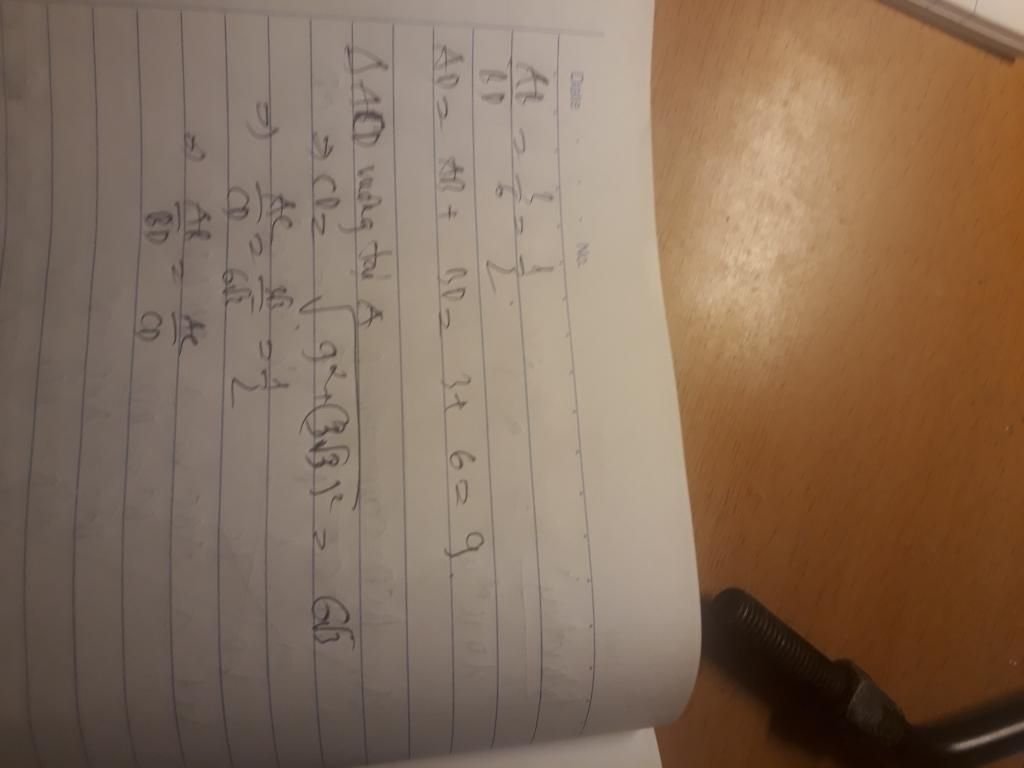 Date . . . No.
AB/BD = 3/6 = 1/2.
AD = AB + BD = 3 + 6 = 9.
Δ ACD vuông tại A
⇒ CD = √(9² + (3√3)²) = 6√3
⇒ AC/CD = 3√3/6√3 = 1/2
⇒ AB/BD = AC/CD